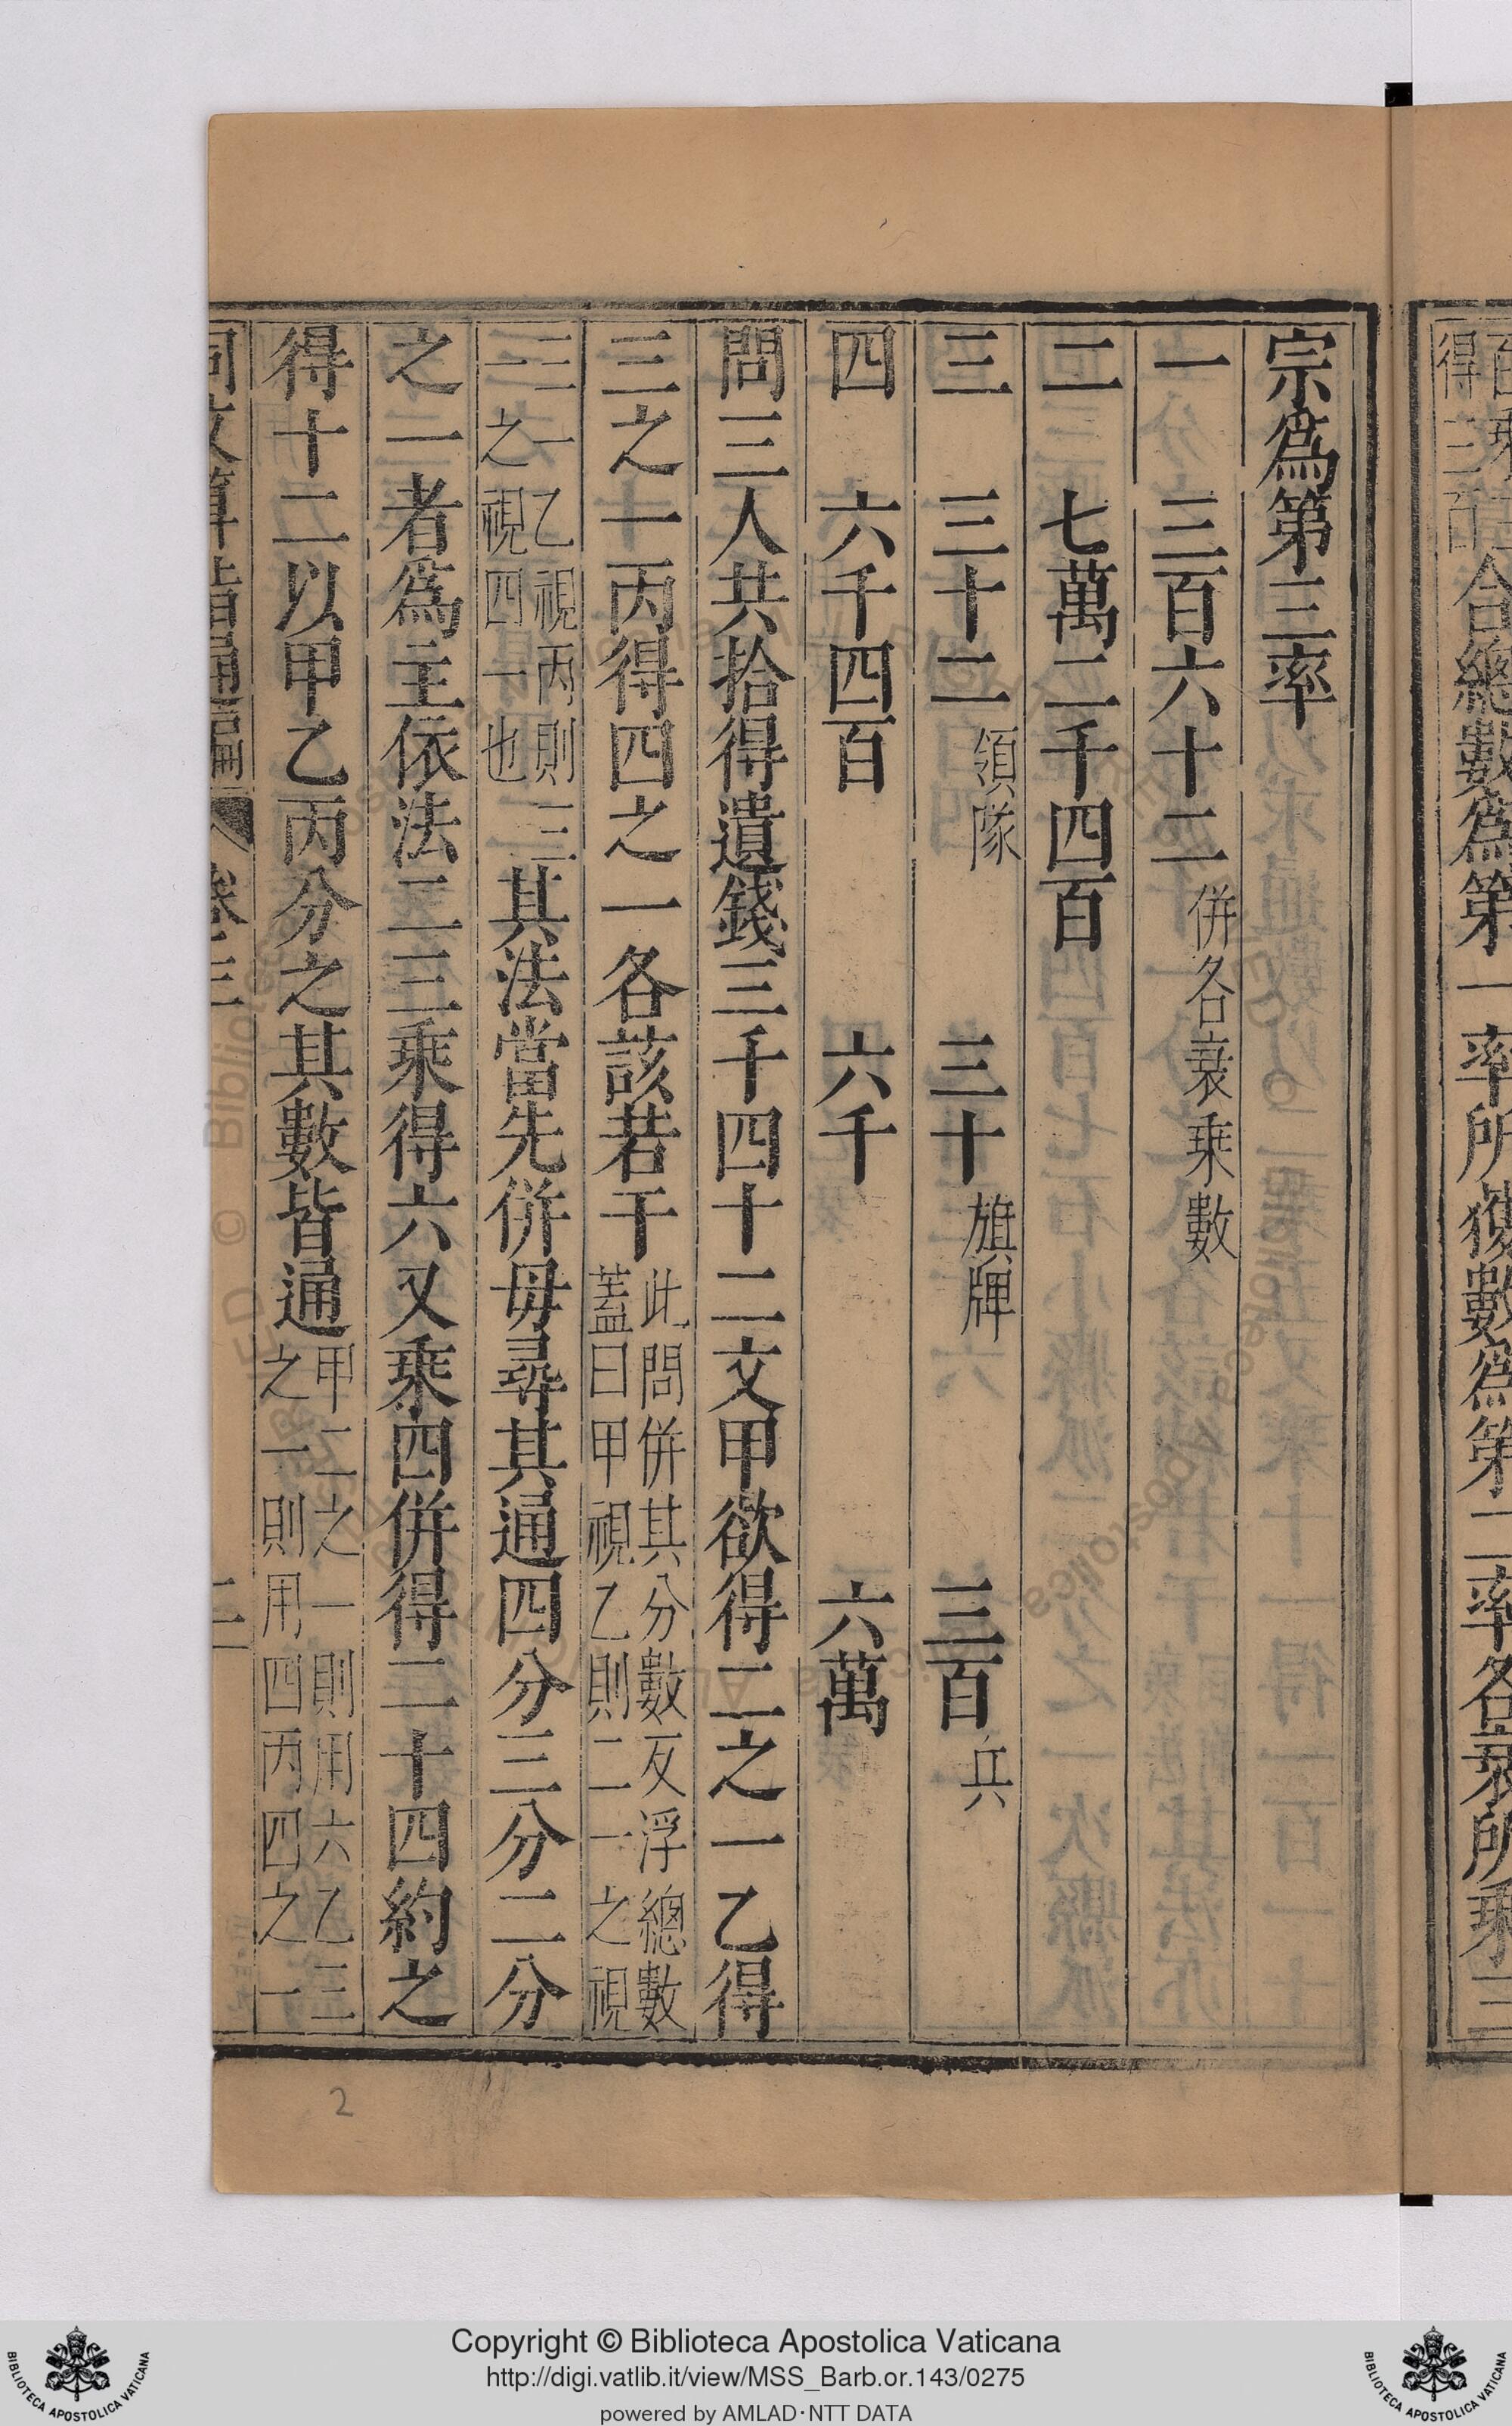 得三百
合總數爲第一率所獲數爲第二率各衰所乘三
宗爲第三率
一 三百六十二 併各衰乘數
二 七萬二千四百
三 三十二 領隊 三十 旗牌 三百 兵
四 六千四百 六千 六萬
問三人共拾得遺錢三千四十二文甲欲得二之一乙得
三之一丙得四之一各該若干 此問併其分數反浮總數 蓋曰甲視乙則二一之視
三一乙視丙則三 一之視四一也 其法當先併毋尋其通四分三分二分
之一者爲主依法二三乘得六又乘四併得二十四約之
得十二以甲乙丙分之其數皆通 甲二之一則用六乙三 之一則用四丙四之一
同文算指通編 卷三 二
2
Copyright © Biblioteca Apostolica Vaticana
http://digi.vatlib.it/view/MSS_Barb.or.143/0275
powered by AMLAD·NTT DATA
BIBLIOTECA APOSTOLICA VATICANA
BIBLIOTECA APOSTOLICA VATICANA